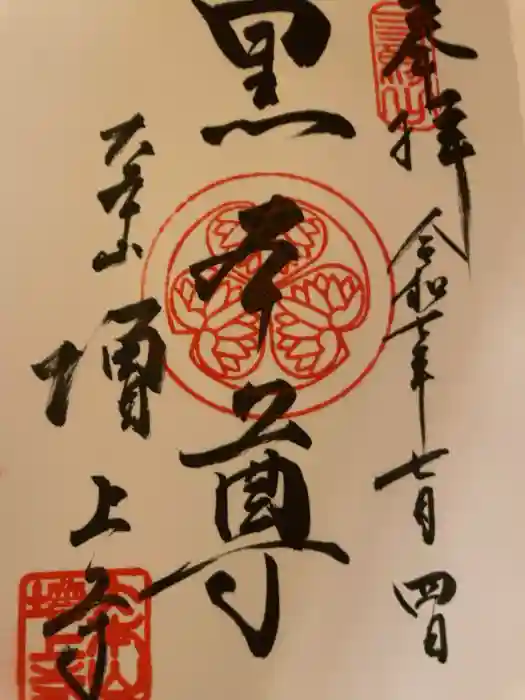 奉拝 令和七年七月四日
三縁山
黒本尊
大本山 増上寺